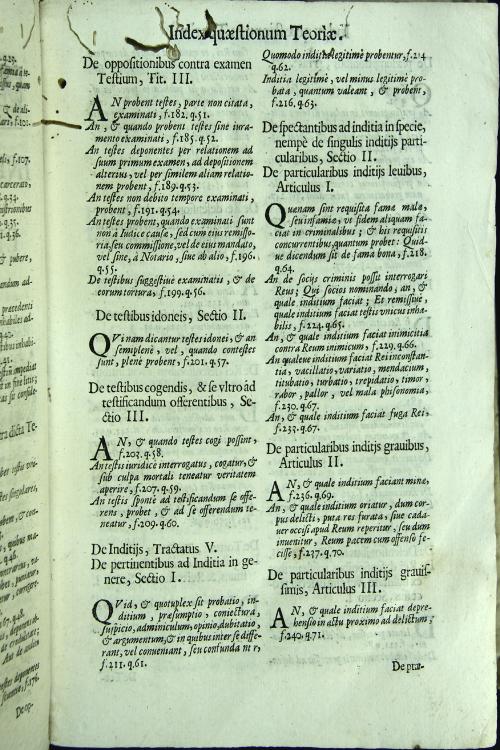 Index quæstionum Teoriæ.
De oppositionibus contra examen
Testium, Tit. III.
AN probent testes, parte non citata,
examinati, f.182. q.51.
An, & quando probent testes sine iura-
mento examinati, f.185. q.52.
An testes deponentes per relationem ad
suum primum examen, ad depositionem
alterius, vel per similem aliam relatio-
nem probent, f.189.q.53.
An testes non debito tempore examinati,
probent, f.191. q.54.
An testes probent, quando examinati sunt
non à Iudice causæ, sed cum eius remisso-
ria, seu commissione, vel de eius mandato,
vel sine, à Notario, siue ab alio, f.196.
q.55.
De testibus suggestiuè examinatis, & de
eorum tortura, f.199. q.56.
De testibus idoneis, Sectio II.
QVi nam dicantur testes idonei, & an
semiplenè, vel, quando contestes
sunt, plenè probent, f.201. q.57.
De testibus cogendis, & se vltro ad
testificandum offerentibus, Se-
ctio III.
AN, & quando testes cogi possint,
f.203. q.58.
An testis iuridicè interrogatus, cogatur, &
sub culpa mortali teneatur veritatem
aperire, f.207. q.59.
An testis spontè ad testificandum se offe-
rens, probet, & ad se offerendum te-
neatur, f.209. q.60.
De Inditijs, Tractatus V.
De pertinentibus ad Inditia in ge-
nere, Sectio I.
QVid, & quotuplex sit probatio, in-
ditium, præsumptio, coniectura,
suspicio, adminiculum, opinio, dubitatio,
& argumentum, & in quibus inter se diffe-
rant, vel conueniant, seu confundantur,
f.211. q.61.
Quomodo inditia legitimè probentur, f.214
q.62.
Inditia legitimè, vel minus legitimè pro-
bata, quantum valeant, & probent,
f.216. q.63.
De spectantibus ad inditia in specie,
nempè de singulis inditijs parti-
cularibus, Sectio II.
De particularibus inditijs leuibus,
Articulus I.
QVenam sint requisita famæ malæ,
seu infamiæ, vt fidem aliquam fa-
ciat in criminalibus; & his requisitis
concurrentibus, quantum probet: Quid-
ue dicendum sit de fama bona, f.218.
q.64.
An de socijs criminis possit interrogari
Reus; Qui socios nominando, an, &
quale inditium faciat; Et remissiuè,
quale inditium faciat testis vnicus inha-
bilis, f.224. q.65.
An, & quale inditium faciat inimicitia
contra Reum inimicum, f.229. q.66.
An qualeue inditium faciat Rei inconstan-
tia, vacillatio, variatio, mendacium,
titubatio, turbatio, trepidatio, timor,
rabor, pallor, vel mala phisonomia,
f.230. q.67.
An, & quale inditium faciat fuga Rei,
f.233. q.67.
De particularibus inditijs grauibus,
Articulus II.
AN, & quale inditium faciant minæ,
f.236. q.69.
An, & quale inditium oriatur, dum cor-
pus delicti, puta res furata, siue cada-
uer occisi apud Reum reperitur, seu dum
inuenitur, Reum pacem cum offenso fe-
cisse, f.237. q.70.
De particularibus inditijs grauis-
simis, Articulus III.
AN, & quale inditium faciat depre-
hensio in actu proximo ad delictum,
f.240. q.71.
De præ-